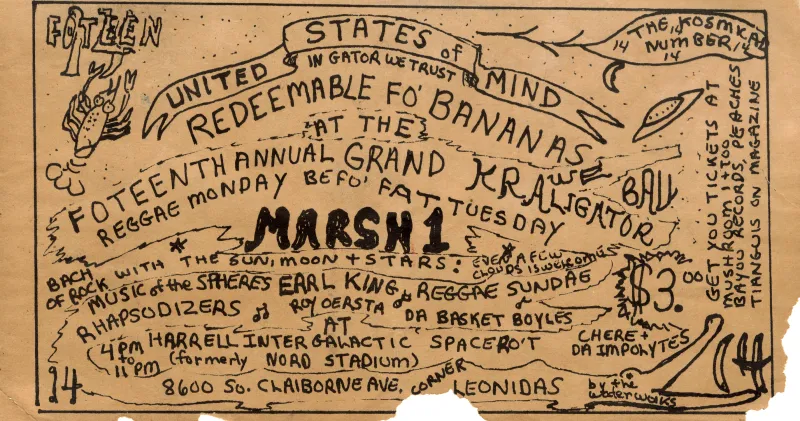 FOTEEN
UNITED STATES of MIND
IN GATOR WE TRUST
REDEEMABLE FO' BANANAS
AT THE
FOTEENTH ANNUAL GRAND KRALIGATOR
BALL
REGGAE MONDAY BEFO' FAT TUESDAY
MARSH 1
BACH OF ROCK WITH THE SUN, MOON + STARS:
EVEN A FEW
CLOUDS IS WELCOME
MUSIC of the SPHERES EARL KING, REGGAE SUNDAE
RHAPSODIZERS
DA BASKET BOYLES
AT
4 pm to 11 pm
HARRELL INTERGALACTIC SPACERO'T
(formerly NORD STADIUM)
8600 So. CLAIBORNE AVE, CORNER LEONIDAS
by the
waderworks
THE KOSMKAL
NUMBER
14 14 14
$3.00
CHERE +
DA IMPOKYTES
14
GET YOU TICKETS AT
MUSHROOM 1 + TOO
BAYOU RECORDS, PEACHES
TIANGUIS ON MAGAZINE